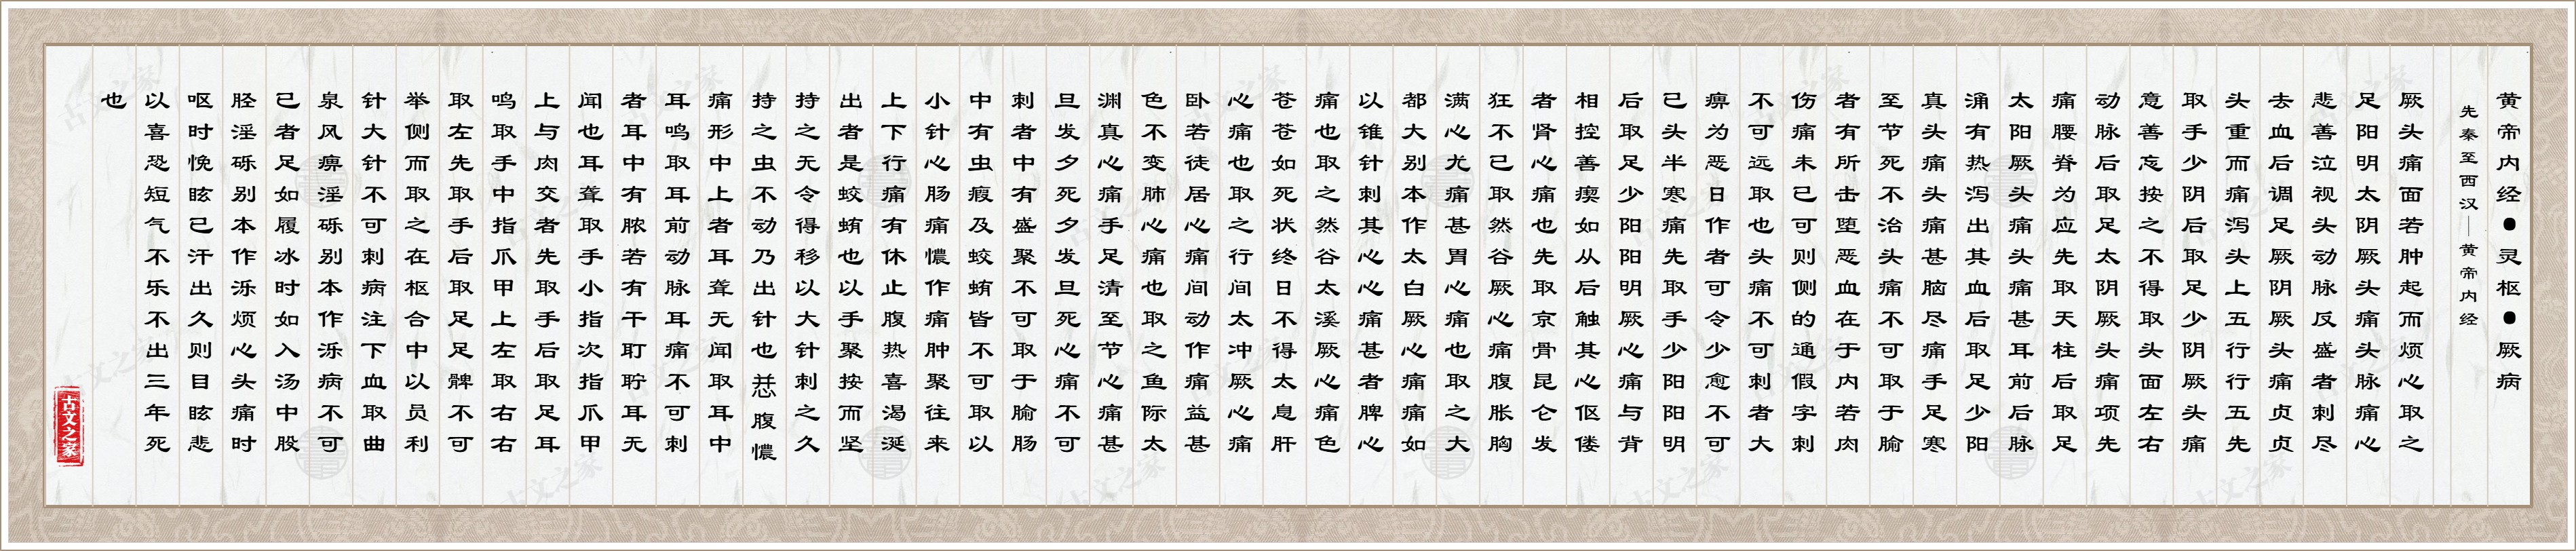 黄帝内经●灵枢●厥病
先秦至西汉——黄帝内经
厥头痛面若肿起而烦心取之
足阳明太阴厥头痛头脉痛心
悲善泣视头动脉反盛者刺尽
去血后调足厥阴厥头痛贞贞
头重而痛泻头上五行行五先
取手少阴后取足少阴厥头痛
意善忘按之不得取头面左右
动脉后取足太阴厥头痛项先
痛腰脊为应先取天柱后取足
太阳厥头痛头痛甚耳前后脉
涌有热泻出其血后取足少阳
真头痛头痛甚脑尽痛手足寒
至节死不治头痛不可取于腧
者有所击堕恶血在于内若肉
伤痛未已可则侧的通假字刺
不可远取也头痛不可刺者大
痹为恶日作者可令少愈不可
已头半寒痛先取手少阳阳明
后取足少阳阳明厥心痛与背
相控善瘈如从后触其心伛偻
者肾心痛也先取京骨昆仑发
狂不已取然谷厥心痛腹胀胸
满心尤痛甚胃心痛也取之大
都大别本作太白厥心痛痛如
以锥针刺其心心痛甚者脾心
痛也取之然谷太溪厥心痛色
苍苍如死状终日不得太息肝
心痛也取之行间太冲厥心痛
卧若徒居心痛间动作痛益甚
色不变肺心痛也取之鱼际太
渊真心痛手足清至节心痛甚
旦发夕死夕发旦死心痛不可
刺者中有盛聚不可取于腧肠
中有虫瘕及蛟蛕皆不可取以
小针心肠痛憹作痛肿聚往来
上下行痛有休止腹热喜渴涎
出者是蛟蛕也以手聚按而坚
持之无令得移以大针刺之久
持之虫不动乃出针也腹憹
痛形中上者耳聋无闻取耳中
耳鸣取耳前动脉耳痛不可刺
者耳中有脓若有干耵聍耳无
闻也耳聋取手小指次指爪甲
上与肉交者先取手后取足耳
鸣取手中指爪甲上左取右右
取左先取手后取足足髀不可
举侧而取之在枢合中以员利
针大针不可刺病注下血取曲
泉风痹淫砾别本作泺病不可
已者足如履冰时如入汤中股
胫淫砾别本作泺烦心头痛时
呕时悗眩已汗出久则目眩悲
以喜恐短气不乐不出三年死
也
古文之家